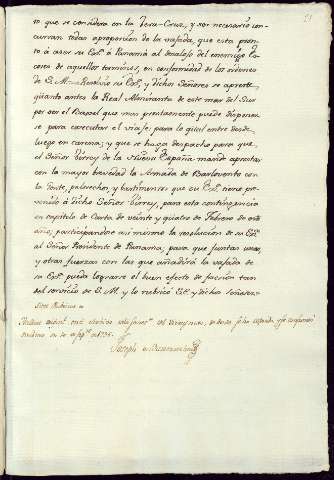 to que se considera en la Vera-Cruz, y ser necesario con-
curran todas a proporcion de la vajada, que esta pron-
to a aser su Ex.ª â Panamá al desalojo del enemigo Es-
coces de aquellos terminos, en conformidad de los ordenes
de S. M. Resolvio su Ex.ª y dichos Señores se apreste
quanto antes la Real Almiranta de este mar del Sur
por ser el Baxel que mas prestamente puede disponer-
se para executar el viaje: para lo qual entre desde
luego en carena; y que se haga despacho para que
el Señor Virrey de la Nueva España mande aprestar
con la mayor brevedad la Armada de Barlovento con
la Gente, peltrechos, y bastimentos que su Ex.ª tiene pre-
venido â dicho Señor Virrey, para esta contingencia
en capitulo de Carta de veinte y quatro de Febrero de este
año; participandose asi mismo la resolucion de su Ex.ª
al Señor Presidente de Panama, para que juntas unas
y otras fuerzas con las que añadirá la vajada de
su Ex.ª pueda lograrse el buen efecto de faccion tan
del servicio de S. M. y lo rubricó Ex.ª y dichos señores=
Seis Rubricas=
Joseph